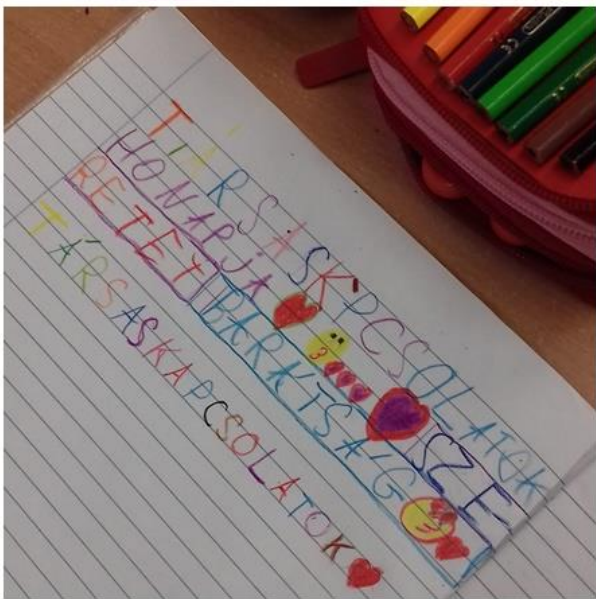 TÁRSASKAPCSOLATOK
HONAPJA ❤ 😗 ❤❤❤ ❤ SZE
RETET BARÁTSÁG 😍
TÁRSASKAPCSOLATOK ❤